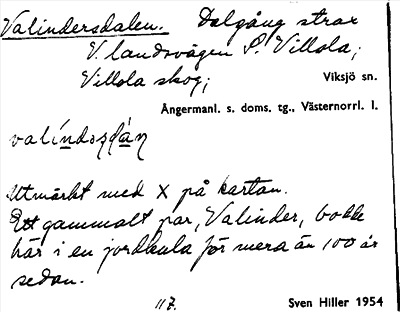 Valindersdalen. Dalgång strax
V. landsvägen S. Villola;
Villola skog;
Viksjö sn.
Ångermanl. s. doms. tg., Västernorrl. l.
Utmärkt med X på kartan.
Ett gammalt par, Valinder, bodde
här i en jordkula för mera än 100 år
sedan.
117.
Sven Hiller 1954